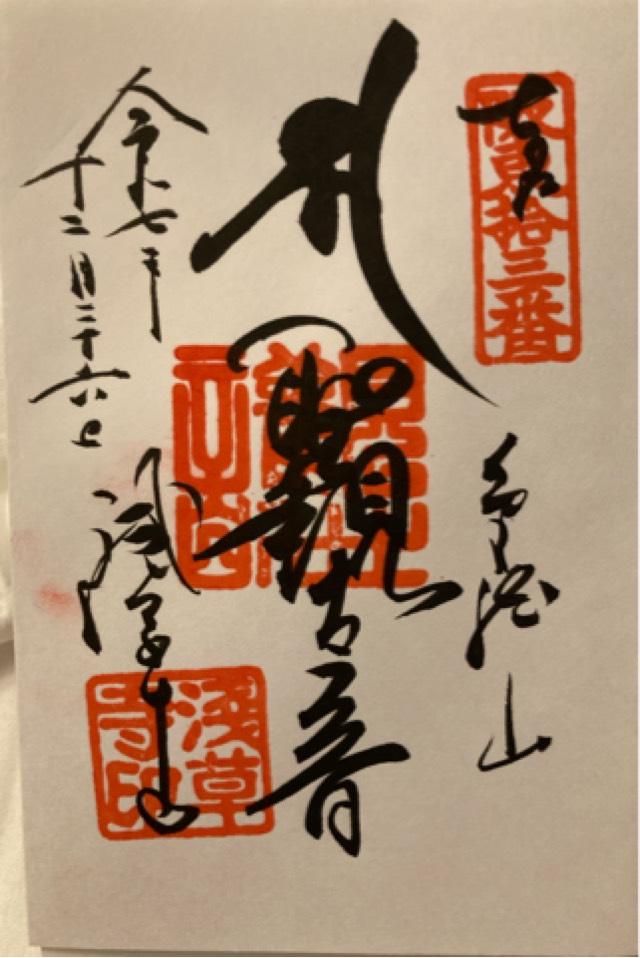 奉拝
坂東拾三番
金龍山
聖観世音
令和七年
十二月二十六日
浅草寺
淺草寺印